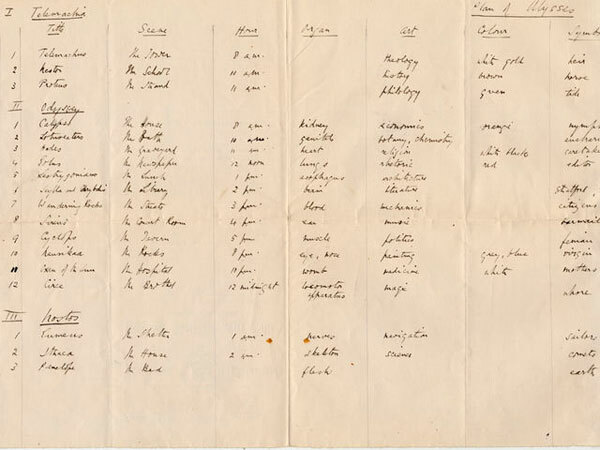 I Telemachia Plan of Ulysses
Title Scene Hour Organ Art Colour Symb
1 Telemachus The Tower 8 a.m. theology white gold heir
2 Nestor The School 10 a.m. history brown horse
3 Proteus The Strand 11 a.m. philology green tide
II Odyssey
1 Calypso The House 8 am kidney economics orange nymph
2 Lotuseaters The Bath 10 am genitals botany, chemistry euchar
3 Hades The Graveyard 11 am heart religion white black caretake
4 Eolus The Newspaper 12 noon lungs rhetoric red editor
5 Lestrygonians The Lunch 1 pm esophagus architecture
6 Scylla and Charybdis The Library 2 pm brain literature Stratford
7 Wandering Rocks The Streets 3 pm blood mechanics citizens
8 Sirens The Concert Room 4 pm ear music barmaids
9 Cyclops The Tavern 5 pm muscle politics fenian
10 Nausikaa The Rocks 8 pm eye, nose painting grey, blue virgin
11 Oxen of the Sun The Hospital 10 pm womb medicine white mothers
12 Circe The Brothel 12 midnight locomotor apparatus magic whore
III Nostos
1 Eumeus The Shelter 1 am nerves navigation sailor
2 Ithaca The House 2 am skeleton science comets
3 Penelope The Bed flesh earth